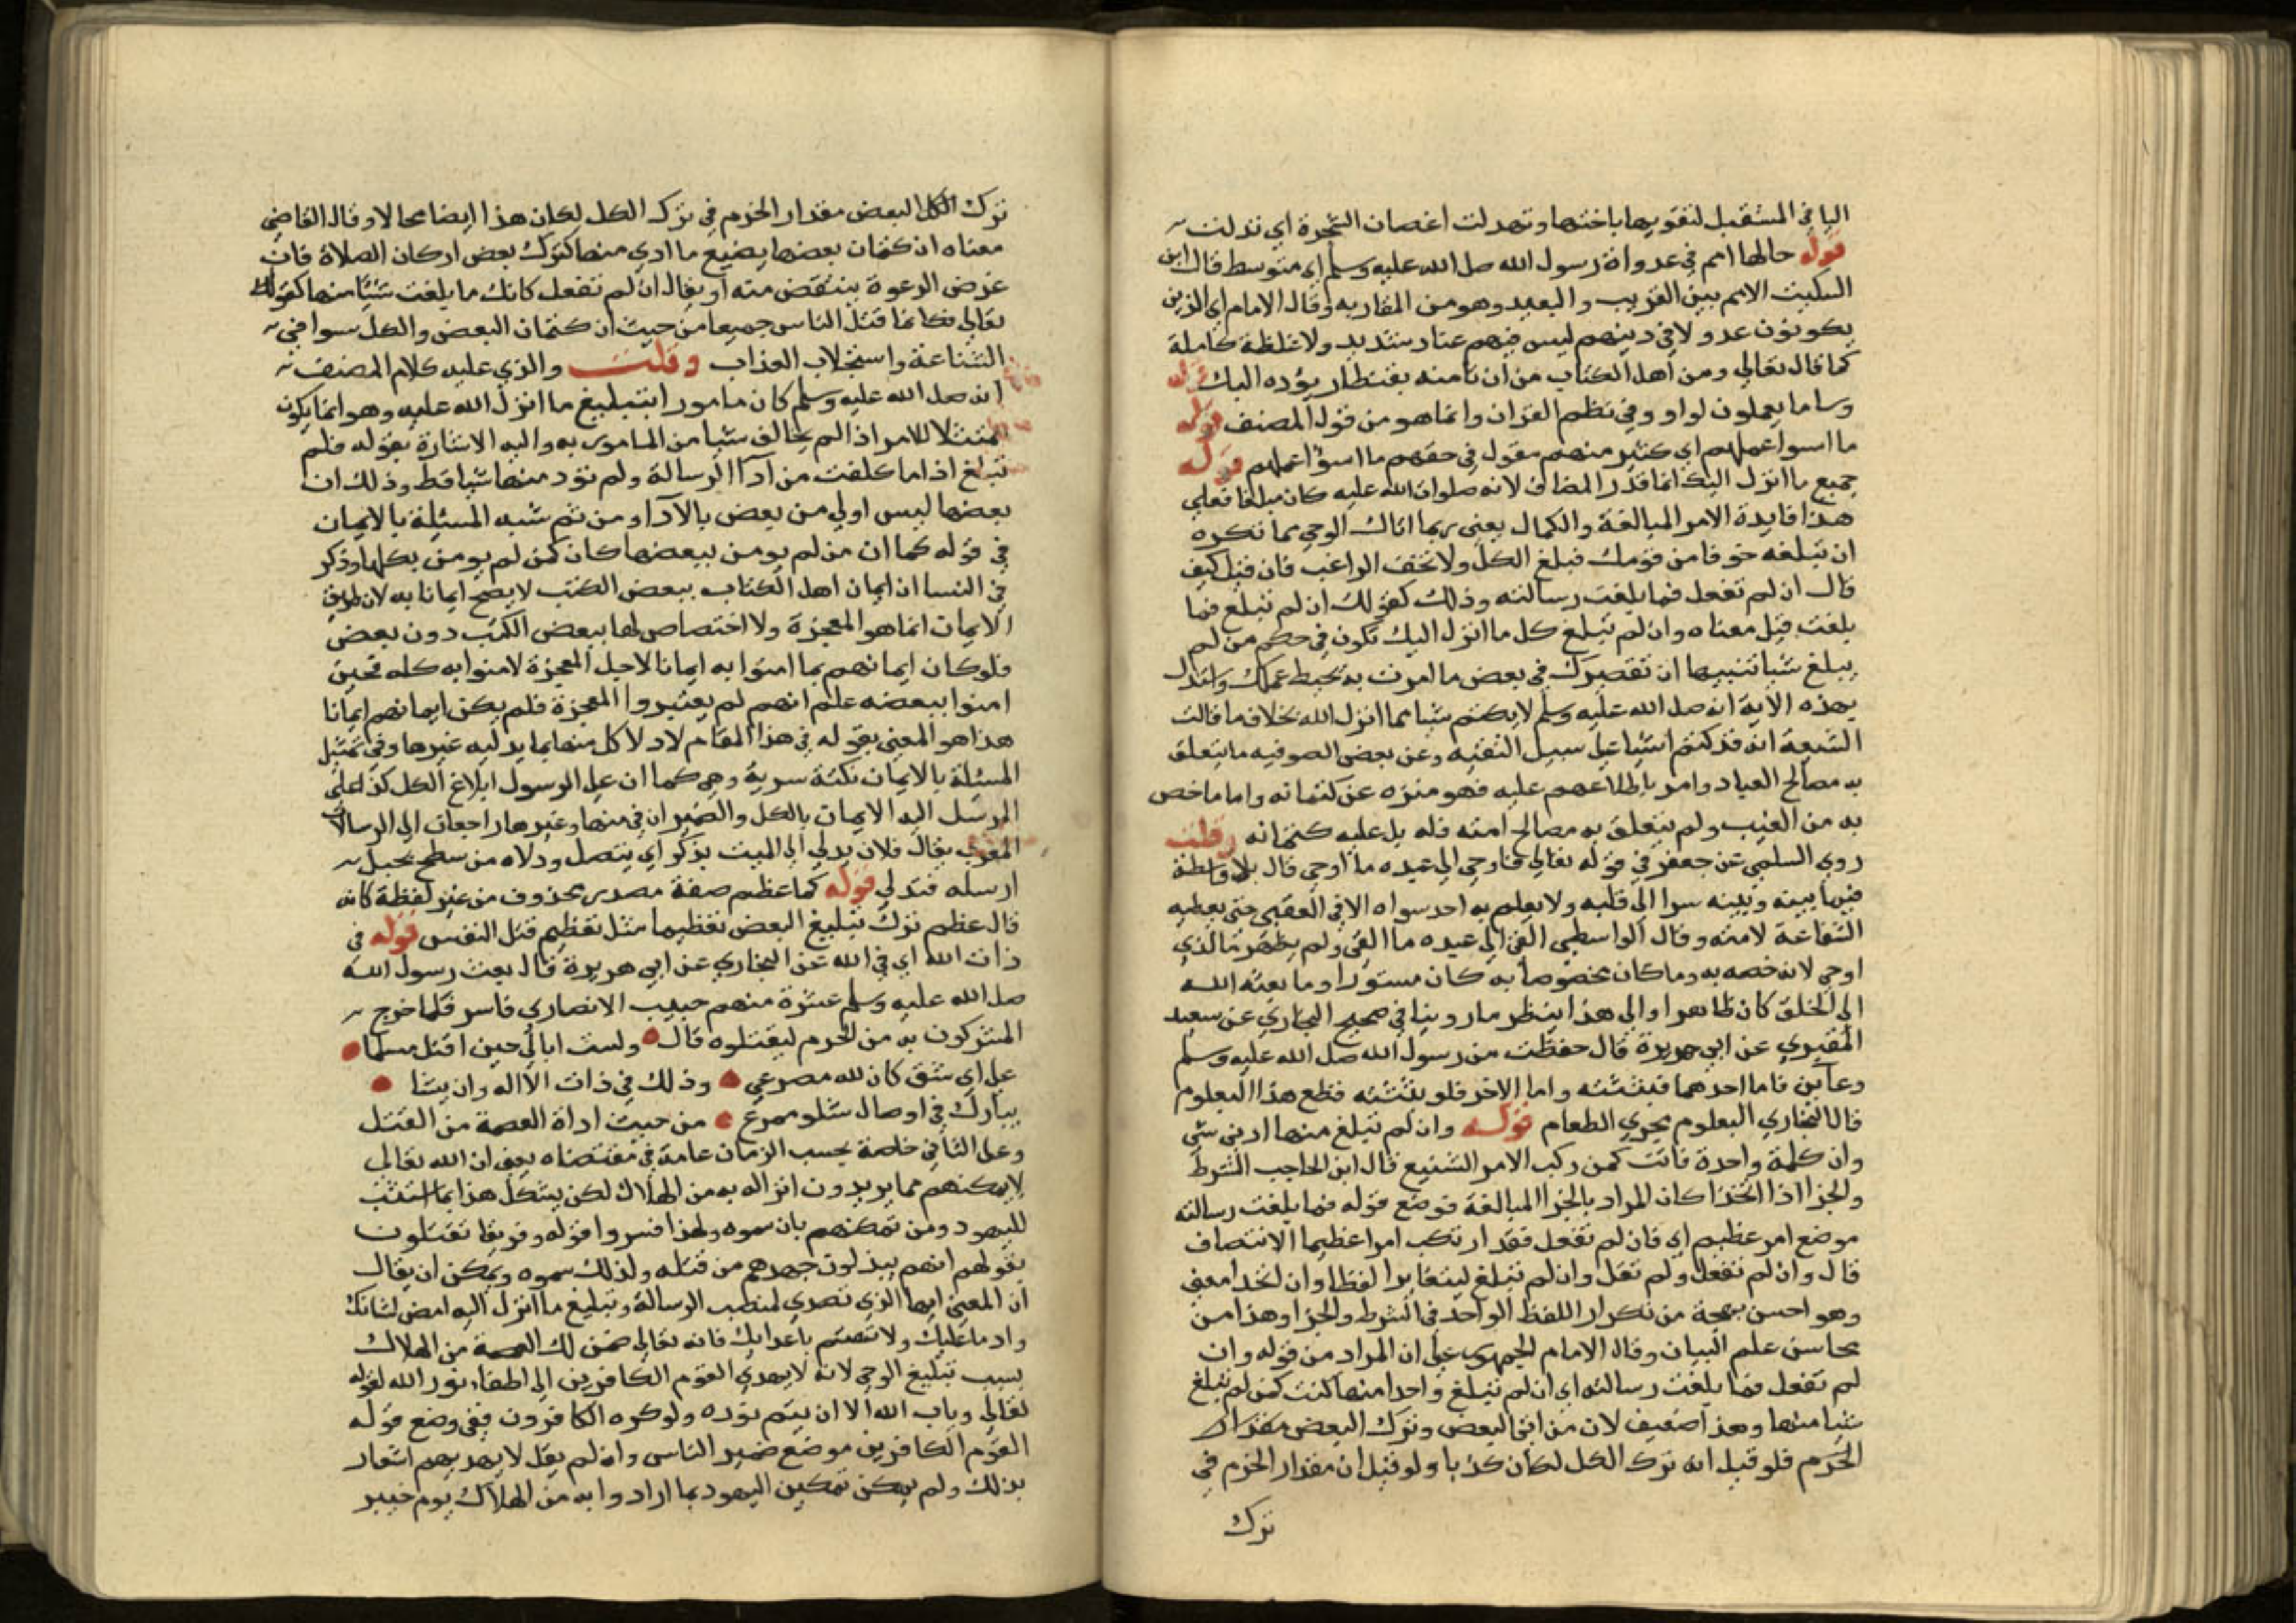 اليا في المستقبل لتقويها باختها وتهدلت اغصان الشجرة اي تدلت
قوله حالها امم في عدواة رسول الله صلى الله عليه وسلم اي متوسط قال ابن
السكيت الامم بين القريب والبعيد وهو من المقاربه وقال الامام اي الذين
يكونون عدولا في دينهم ليس فيهم عناد شديد ولا غلظة كاملة
كما قال تعالى ومن اهل الكتاب من ان تامنه بقنطار يؤده اليك قوله
وسا ما يعملون لواو وفي نظم القران وانما هو من قول المصنف قوله
ما اسوا عملهم اي كثير منهم مقول في حقهم ما اسوا عملهم قوله
جميع ما انزل اليك انما قدر المضاف لانه صلوات الله عليه كان مبلغا فعلى
هذا فايدة الامر المبالغة والكمال يعني ربما اتاك الوحي بما تكره
ان تبلغه خوفا من قومك فبلغ الكل ولا تخف الراغب فان قيل كيف
قال ان لم تفعل فما بلغت رسالته وذلك كقولك ان لم تبلغ فما
بلغت قيل معناه وان لم تبلغ كل ما انزل اليك تكون في حكم من لم
يبلغ شيا تنبيها ان تقصيرك في بعض ما امرت به يحبط عملك واستدل
بهذه الاية انه صلى الله عليه وسلم لا يكتم شيا مما انزل الله بخلاف ما قالت
الشيعة انه قد كتم اشيا على سبيل التقيه وعن بعض الصوفيه ما يتعلق
به مصالح العباد وامر باطلاعهم عليه فهو منزه عن كتمانه واما ما خص
به من الغيب ولم يتعلق به مصالح امته فله بل عليه كتمانه وقلت
روى السلمي عن جعفر في قوله تعالى فاوحى الى عبده ما اوحى قال بلا واسطة
فيما بينه وبينه سرا الى قلبه ولا يعلم به احد سواه الا في العقبى حتى يعطيه
الشفاعة لامته وقال الواسطي القى الى عبده ما القى ولم يظهر ما الذي
اوحى لانه خصه به وما كان مخصوصا به كان مستورا وما بعثه الله
الى الخلق كان ظاهرا والى هذا ينظر ما روينا في صحيح البخاري عن سعيد
المقبري عن ابي هريرة قال حفظت من رسول الله صلى الله عليه وسلم
وعآين فاما احدهما فبثثته واما الاخر فلو بثثته قطع هذا البعلوم
قال البخاري البعلوم مجرى الطعام قوله وان لم تبلغ منها ادنى شي
وان كلمة واحدة فانت كمن ركب الامر الشنيع قال ابن الحاجب الشرط
والجزا اذا اتحدا كان المراد بالجزا المبالغة فوضع قوله فما بلغت رسالته
موضع امر عظيم اي فان لم تفعل فقد ارتكب امرا عظيما الانتصاف
قال وان لم تفعل ولم تقل وان لم تبلغ ليتغايرا لفظا وان اتحدا معنى
وهو احسن بهجة من تكرار اللفظ الواحد في الشرط والجزا وهذا من
محاسن علم البيان وقال الامام الجمهور على ان المراد من قوله وان
لم تفعل فما بلغت رسالته اي ان لم تبلغ واحدا منها كنت كمن لم تبلغ
شيا منها وهذا ضعيف لان من اتى البعض وترك البعض مقدار
الجرم فلو قيل انه ترك الكل لكان كذبا ولو قيل ان مقدار الجرم في
ترك
ترك الكل البعض مقدار الجرم في ترك الكل لكان هذا ايضا محالا وقال القاضي
معناه ان كتمان بعضها يضيع ما ادي منها كترك بعض اركان الصلاة فان
غرض الدعوة ينتقض منه او يقال ان لم تفعل كانك ما بلغت شيئا منها كقوله
تعالى فكانما قتل الناس جميعا من حيث ان كتمان البعض والكل سوا في
الشناعة واستجلاب العذاب وقلت والذي عليه كلام المصنف
انه صلى الله عليه وسلم كان مامورا بتبليغ ما انزل الله عليه وهو انما يكون
ممتثلا للامر اذا لم يخالف شيا من المامور به واليه الاشارة بقوله فلم
تبلغ اذا ما كلفت من ادآ الرسالة ولم تؤد منها شيا قط وذلك ان
بعضها ليس اولى من بعض بالآدا ومن ثم شبه المسئلة بالايمان
في قوله كما ان من لم يومن ببعضها كان كمن لم يومن بكلها وذكر
في النسا ان ايمان اهل الكتاب ببعض الكتب لا يصح ايمانا به لان طريق
الايمان انما هو المعجزة ولا اختصاص لها ببعض الكتب دون بعض
فلو كان ايمانهم بما امنوا به ايمانا لاجل المعجزة لامنوا به كله فحين
امنوا ببعضه علم انهم لم يعتبروا المعجزة فلم يكن ايمانهم ايمانا
هذا هو المعنى بقوله في هذا المقام لادلا كل منها بما يدليه غيرها وفي تمثيل
المسئلة بالايمان نكتة سرية وهي كما ان على الرسول ابلاغ الكل كذا على
المرسل اليه الايمان بالكل والضميران في منها وغيرها راجعان الى الرسالات
المغرب يقال فلان يدلي الى الميت بذكر اي يتصل ودلاه من سطح بحبل
ارسله فتدلى قوله كما عظم صفة مصدر محذوف من غير لفظة كانه
قال عظم ترك تبليغ البعض تعظيما مثل تعظيم قتل النفس قوله في
ذات الله اي في الله عن البخاري عن ابي هريرة قال بعث رسول الله
صلى الله عليه وسلم عشرة منهم خبيب الانصاري فاسر فلما خرج
المشركون به من الحرم ليقتلوه قال ولست ابالي حين اقتل مسلما
على اي شق كان لله مصرعي وذلك في ذات الاله وان يشا
يبارك في اوصال شلو ممزع من حيث اداة العصمة من القتل
وعلى الثاني خاصة بحسب الزمان عامة في مقتضاه يعني ان الله تعالى
لا يمكنهم مما يريدون انزاله به من الهلاك لكن يشكل هذا بما استتب
لليهود ومن تمكنهم بان سموه ولهذا فسروا قوله وفريقا تقتلون
بقولهم انهم يبذلون جهدهم من قتله ولذلك سموه ويمكن ان يقال
ان المعنى ايها الذي تصدى لمنصب الرسالة وتبليغ ما انزل اليه امض لشانك
واد ما عليك ولا تهتم باعدايك فانه تعالى ضمن لك العصمة من الهلاك
بسبب تبليغ الوحي لانه لا يهدي القوم الكافرين الى اطفاء نور الله لقوله
تعالى وياب الله الا ان يتم نوره ولو كره الكافرون ففي وضع قوله
القوم الكافرين موضع ضمير الناس وان لم يقل لا يهديهم اشعار
بذلك ولم يكن تمكين اليهود بما ارادوا به من الهلاك يوم خيبر